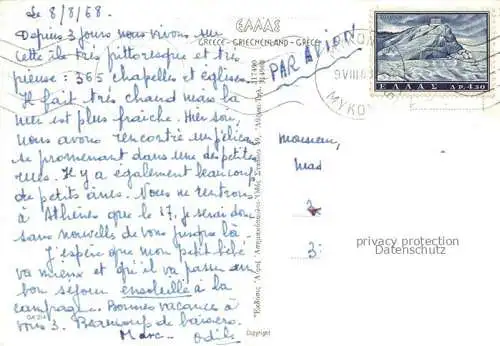 Le 8/8/68.
Depuis 3 jours nous vivons sur
cette île très pittoresque et très
pieuse : 365 chapelles et églises.
Il fait très chaud mais la
mer est plus fraîche. Hier soir,
nous avons rencontré un pélican
se promenant dans une des petites
rues. Il y a également beaucoup
de petits ânes. Nous ne rentrons
à Athènes que le 17, je serai donc
sans nouvelles de vous jusque là.
J'espère que mon petit bébé
va mieux et qu'il va passer un
bon séjour ensoleillé à la
campagne. Bonnes vacances à
vous 3. Beaucoup de baisers.
Marc. Odile
ΕΛΛΑΣ
GREECE - GRIECHENLAND - GRECE
PAR AVION
ΕΛΛΑΣ ΔΡ. 4.50
Monsieur,
3:
privacy protection
Datenschutz
Copyright